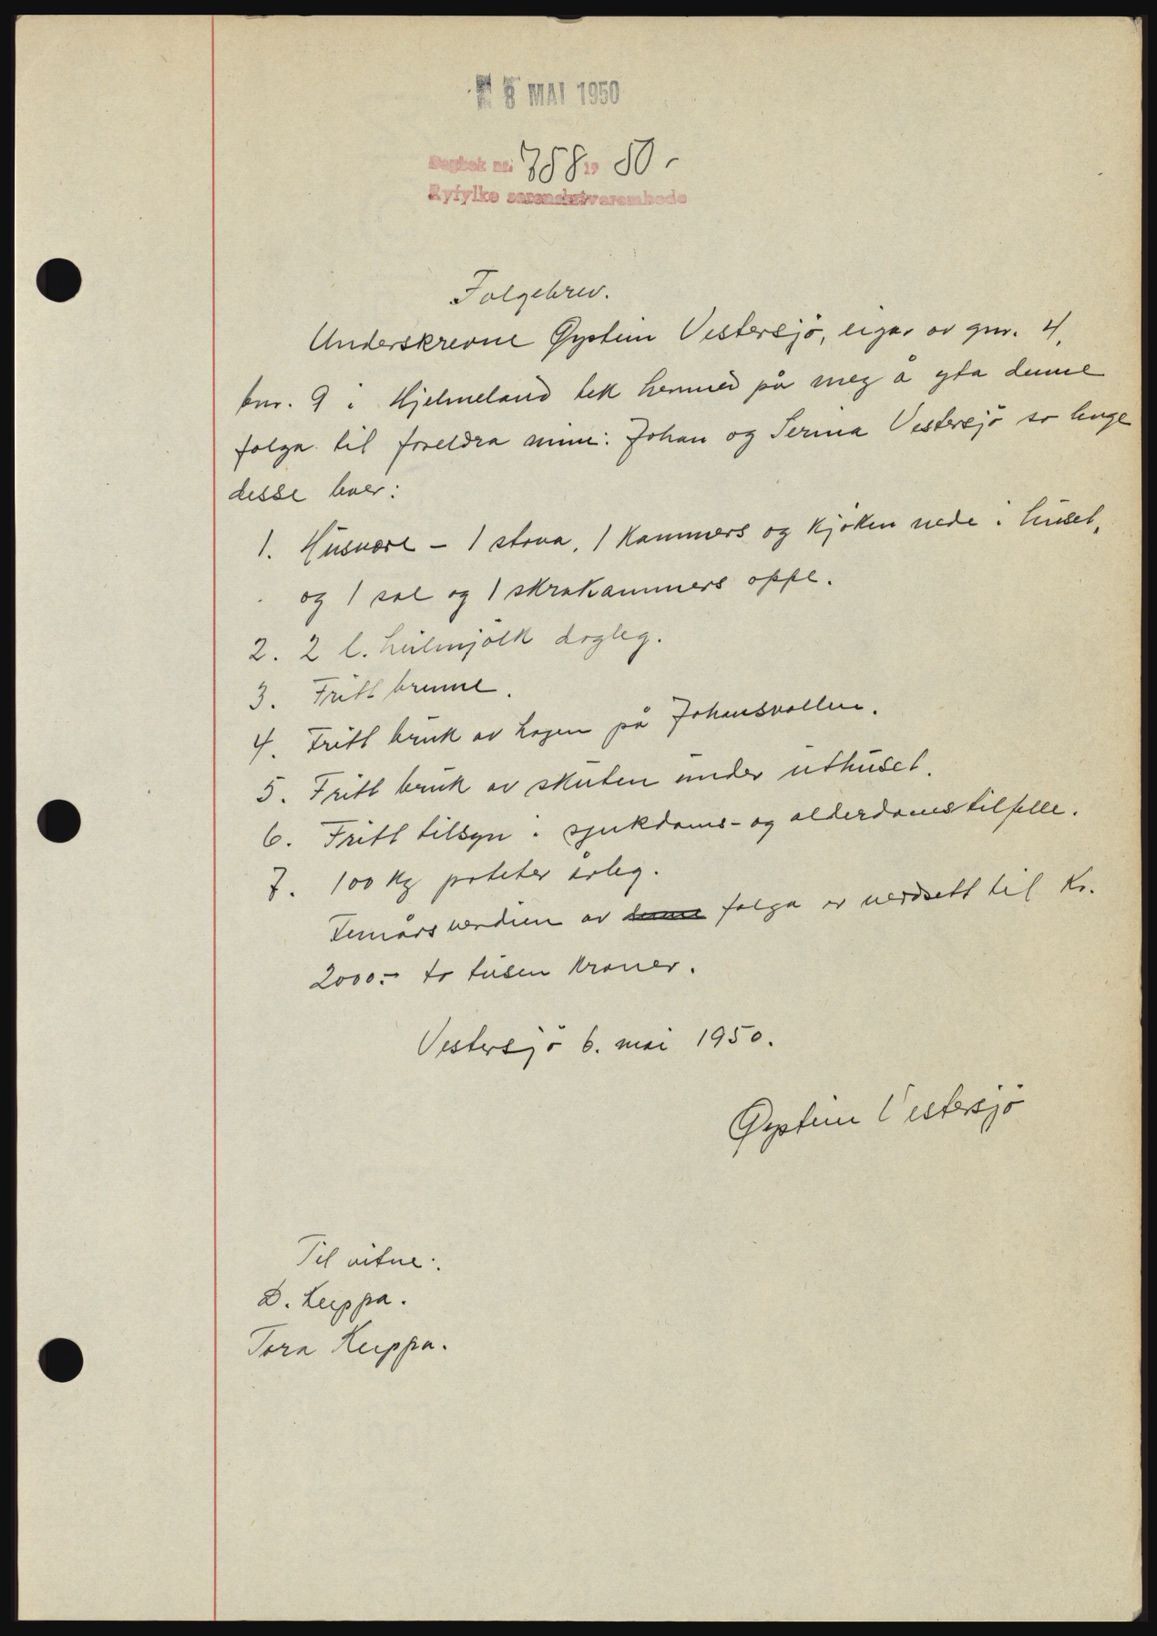 8 MAI 1950
Dagbok nr. 758 19 50.
Ryfylke sorenskriverembede
Folgebrev.
Underskrevne Øystein Vestersjö, eigar av gnr. 4,
bnr. 9 i Hjelmeland tek hermed på meg å yta denne
folga til foreldra mine: Johan og Serina Vestersjö so lenge
desse lever:
1. Husvære - 1 stova, 1 kammers og kjöken nede i huset,
og 1 sal og 1 skrakammers oppe.
2. 2 l. heilmjölk dagleg.
3. Fritt brenne.
4. Fritt bruk av hagen på Johansvollen.
5. Fritt bruk av skuten under uthuset.
6. Fritt tilsyn i sjukdoms- og alderdomstilfelle.
7. 100 kg poteter årleg.
Femårsverdien av denne folga er verdsett til Kr.
2000.- to tusen kroner.
Vestersjö 6. mai 1950.
Øystein Vestersjö
Til vitne:
D. Kuppa.
Tora Kuppa.